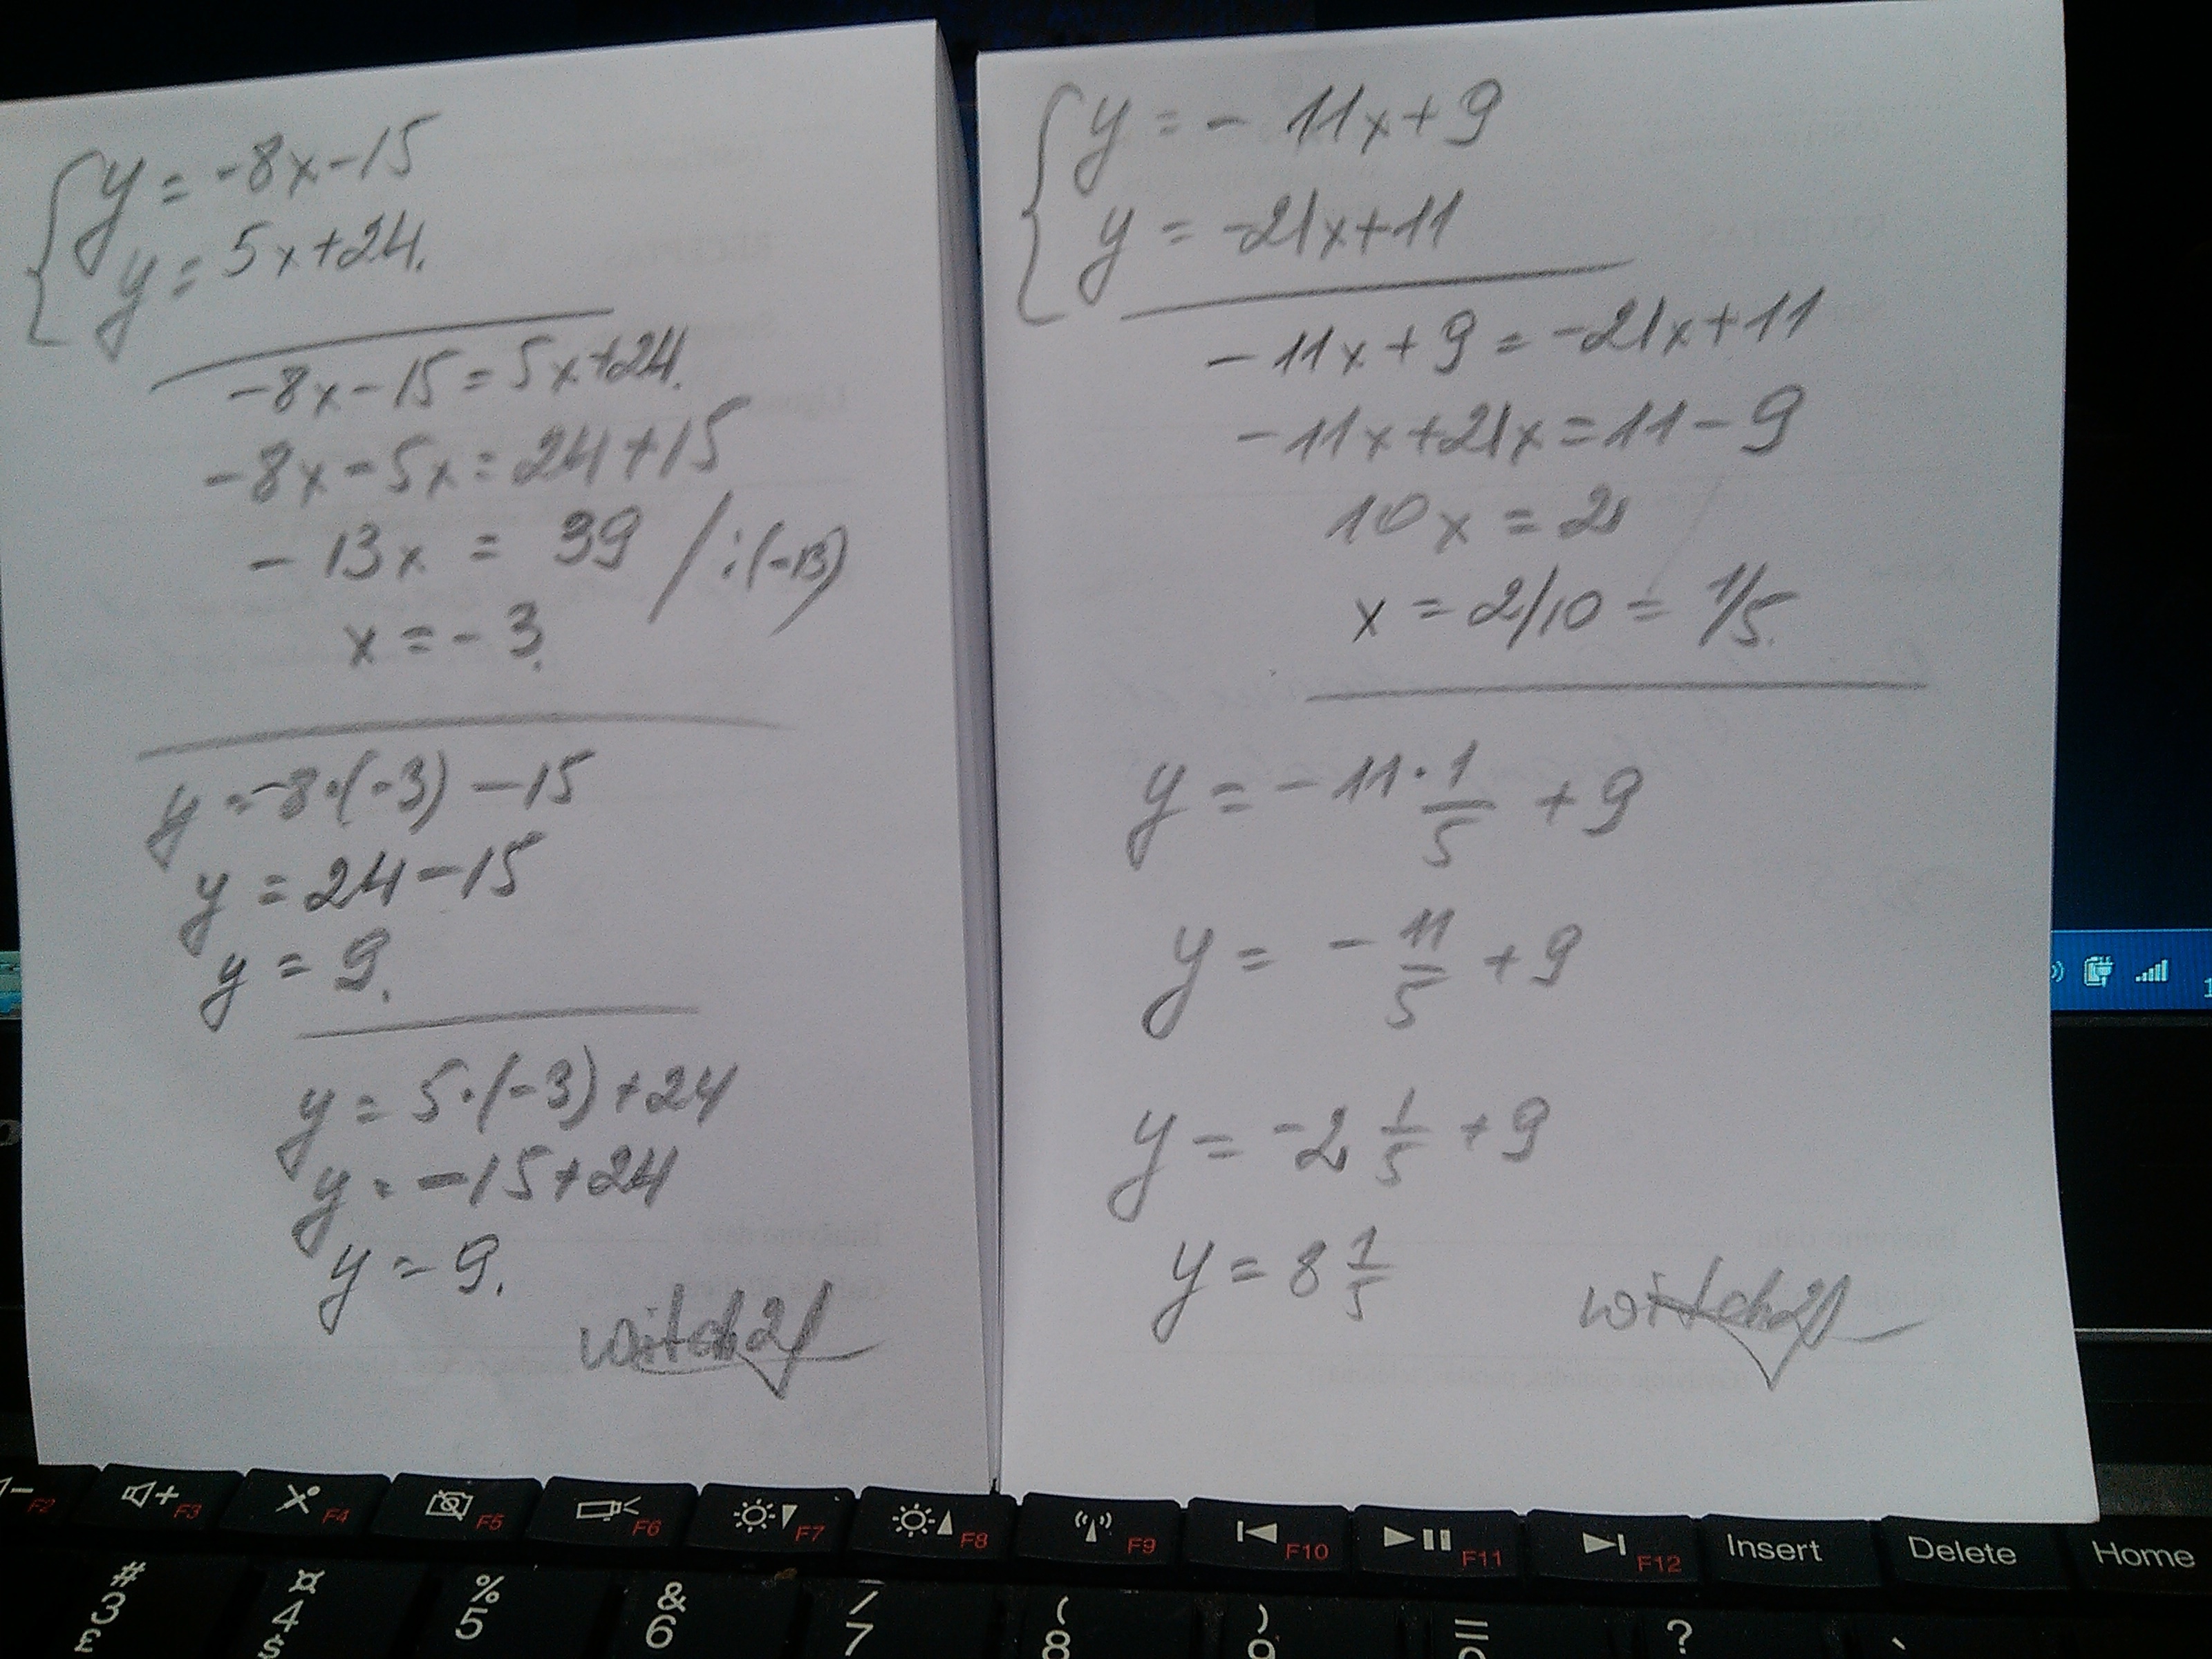 y = -8x-15
y = 5x+24.
-8x-15 = 5x+24.
-8x-5x = 24+15
-13x = 39 /:(-13)
x = -3.
y = -8·(-3) -15
y = 24-15
y = 9.
y = 5·(-3)+24
y = -15+24
y = 9.
witch21
y = -11x+9
y = -21x+11
-11x+9 = -21x+11
-11x+21x = 11-9
10x = 2
x = 2/10 = 1/5.
y = -11·1/5 +9
y = -11/5 +9
y = -2 1/5 +9
y = 8 1/5
witch21
F2 F3 F4 F5 F6 F7 F8 F9 F10 F11 F12 Insert Delete Home
# ¤ % & / ( ) = ? `
3 4 5 6 7 8 9 0
£ $